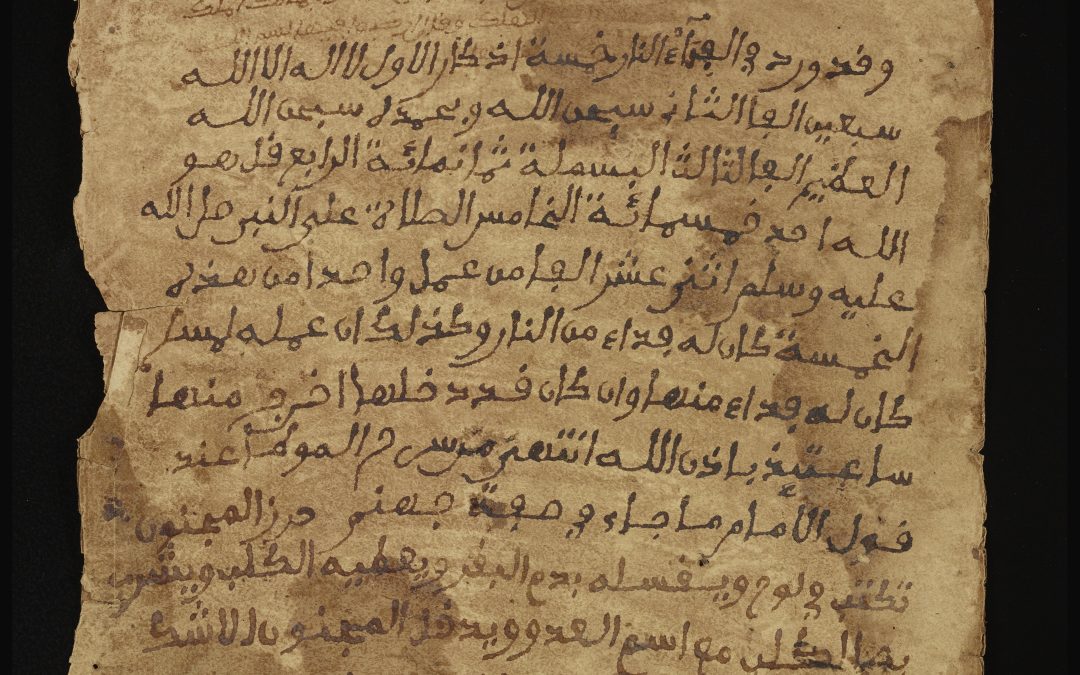 وقد ورد في الفداء من النار خمسة اذكار الاول لا اله الا الله
سبعين الفا الثاني سبحن الله وبحمده سبحن الله
العظيم الفا الثالث البسملة ثمانمائة الرابع قل هو
الله احد خمسمائة الخامس الصلاة على النبي صلى الله
عليه وسلم اثنى عشر الفا من عمل واحدا من هذه
الخمسة كان له فداء من النار وكذلك ان عمله
كان له فداء منها وان كان قد دخلها اخرج منها
ساعتيذ باذن الله انتهى من الموطأ عند
قول الأمام ما جاء في صفة جهنم حرز المجنون
تكتب في لوح ويغسله بدم البقر ويعطيه الكلب ويشرب
الكلب مع اسم العدو و المجنون